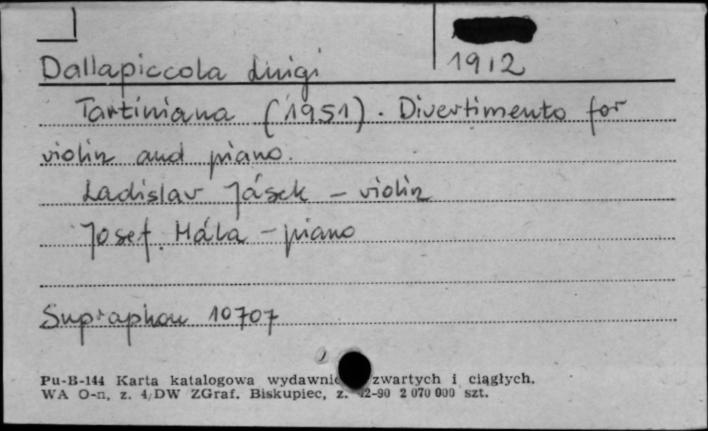 1912
Dallapiccola Luigi
Tartiniana (1951). Divertimento for
violin and piano.
Ladislav Jásek - violin
Josef Hála - piano
Supraphon 10707
Pu-B-144 Karta katalogowa zwartych i ciągłych.
WA O-n, z. 4/DW ZGraf. Biskupiec, z. 2-90 2 070 000 szt.